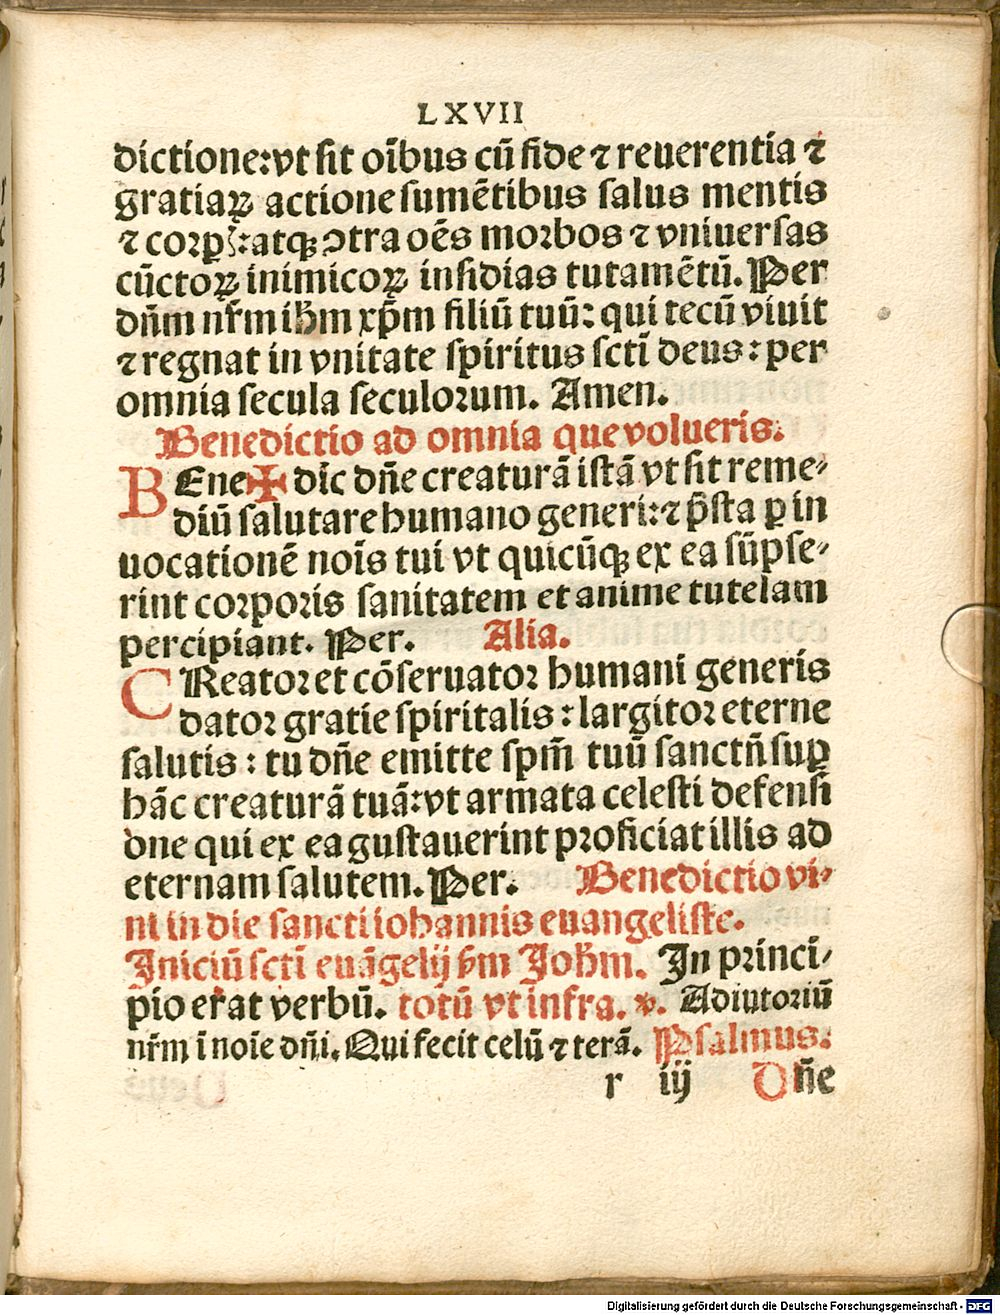 LXVII
dictione:vt sit oībus cū fide ⁊ reuerentia ⁊
gratiaꝝ actione sumētibus salus mentis
⁊ corpꝭ:atqꝫ ↄtra oēs morbos ⁊ vniuersas
cūctoꝝ inimicoꝝ insidias tutamētū. Per
dn̄m nr̄m ihm̄ xp̄m filiū tuū: qui tecū viuit
⁊ regnat in vnitate spiritus sctī deus: per
omnia secula seculorum. Amen.
Benedictio ad omnia que volueris.
BEne✠dic dn̄e creaturā istā vt sit reme-
diū salutare humano generi: ⁊ p̄sta ꝑ in
uocationē noīs tui vt quicūqꝫ ex ea sūpse-
rint corporis sanitatem et anime tutelam
percipiant. Per. Alia.
CReator et cōseruator humani generis
dator gratie spiritalis: largitor eterne
salutis: tu dn̄e emitte spm̄ tuū sanctn̄ suꝑ
hāc creaturā tuā: vt armata celesti defensi
one qui ex ea gustauerint proficiat illis ad
eternam salutem. Per. Benedictio vi-
ni in die sancti iohannis euangeliste.
Iniciū sctī euāgelij scdm̄ Johm̄. In princi-
pio erat verbū. totū vt infra. ℣. Adiutoriū
nr̄m ī noīe dn̄i. Qui fecit celū ⁊ terā. Psalmus.
r iij Dn̄e
Digitalisierung gefördert durch die Deutsche Forschungsgemeinschaft - DFG